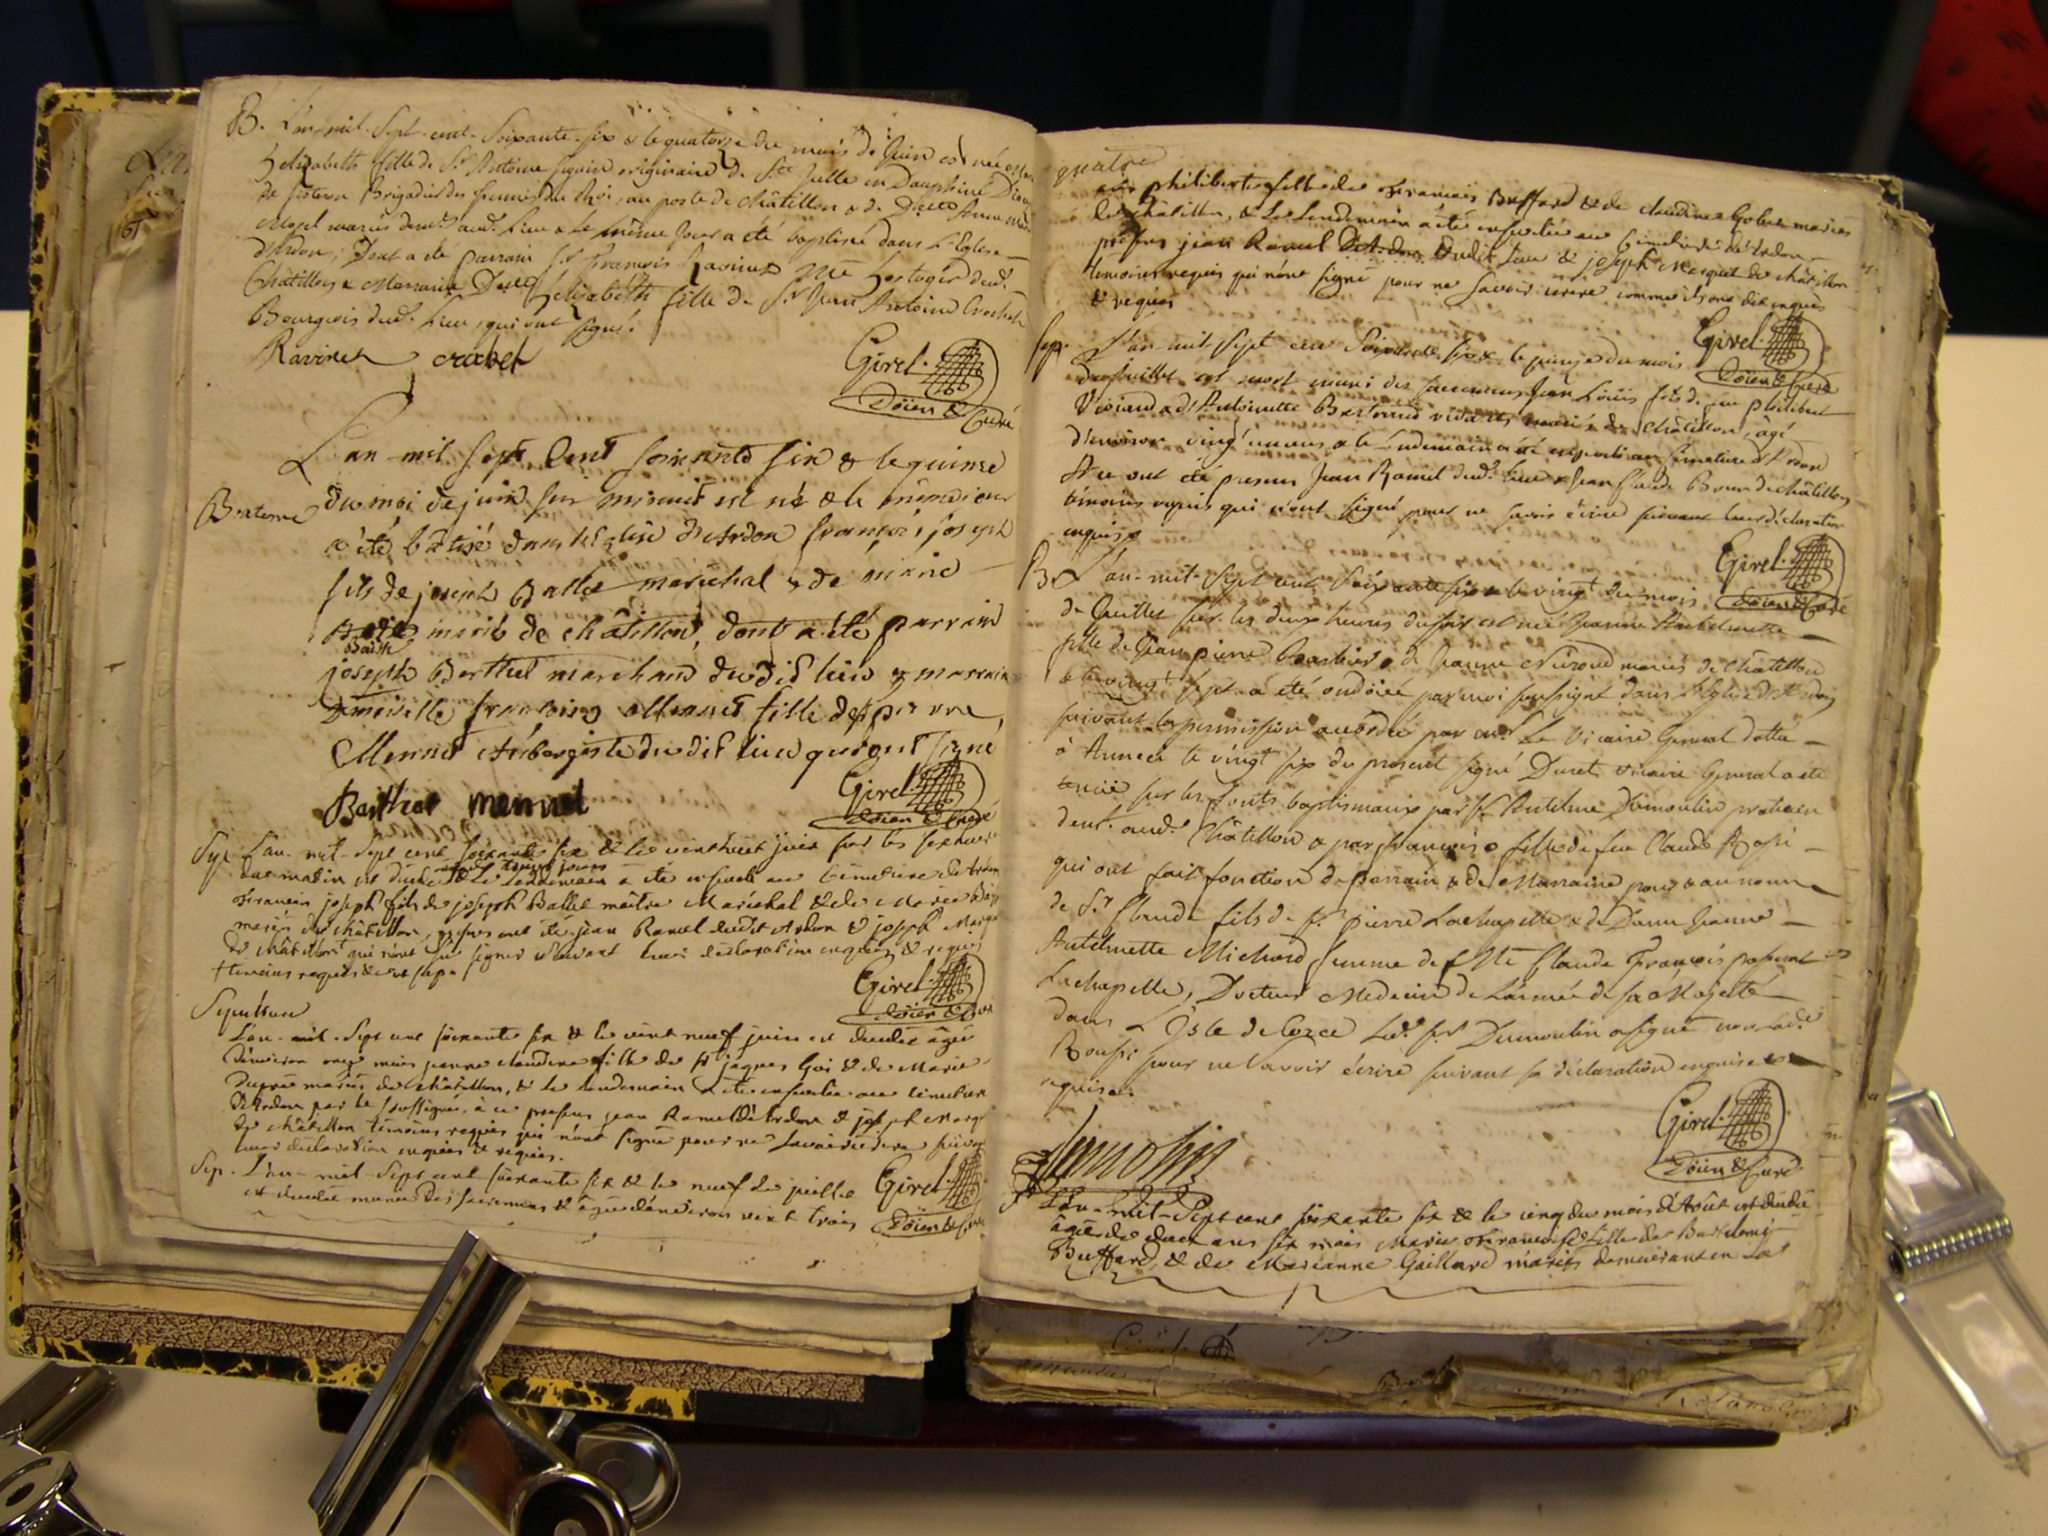 B. L'an-mil-Sept-cent-Soixante-six & le quatorze du mois de Juin est née
Elisabeth fille de Sr Antoine originaire de Ste Julle en Dauphiné
de Brigadier des fermes du Roi, au poste de Châtillon & de Delle
mariés aud. Lieu & Le même Jour a été baptisée dans L'Eglise
d'Ardon, Dont a été parrain Sr françois Ravinet dud.
Châtillon & Marraine Delle Elisabeth fille de Sr Jean Antoine Crochet
Bourgeois dud. Lieu, qui ont signé.
Ravinet crochet
Girel.
Doïen & Curé
L'an mil sept Cent soixante six & le quinse
Bateme du moi de juin sur minuit est né & le même jour
a été bâtisé dans l'Eglise d'Ardon françois joseph
fils de joseph Ballet maréchal & de marie
mariés de châtillon, dont a été parrain
joseph Berthet marchand dudit lieu & marraine
Dmoiselle françoise Mermet fille de pierre
Mermet Aubergiste dudit lieu qui ont signé
Berthet mermet
Girel.
Doïen & Curé
Sep. L'an-mil-Sept cent soixante six & le vint huit juin sur les sept heures
du matin est décédé & Le Lendemain a été enseveli au Cimetiere de Ardon
françois joseph fils de joseph Ballet maître Maréchal & de Marie
mariés de châtillon, présens ont été jean Ramel dudit Ardon & joseph
de châtillon qui n'ont su signer suivant leur déclaration enquis & requis
témoins requis
Girel.
Doïen & Curé
Sepulture
L'an-mil-Sept cent soixante six & le vint neuf juin est décédée âgée
d'environ onze mois jeanne claudine fille de Sr jaques Goi & de Marie
Dupré mariés de châtillon, & le lendemain a été ensevelie au cimetiere
d'Ardon par Le soussigné, à ce présens jean Ramel d'Ardon & joseph
de châtillon témoins requis qui n'ont signé pour ne savoir écrire suivant
leur déclaration enquis & requis.
Girel.
Doïen & Curé
Sep. L'an-mil-Sept cent soixante six & le neuf de juillet
est décédée munie des sacremens & âgée d'environ vint trois
quatre
ans philiberte fille de françois Buffard & de claudine mariés
de châtillon, & Le Lendemain a été ensevelie au Cimetiere d'Ardon
présens jean Ramel dudit Lieu & joseph de châtillon
témoins requis qui n'ont signé pour ne savoir écrire comme ils ont dit enquis
& requis
Girel.
Doïen & Curé
Sep. L'an-mil-Sept cent Soixante six & le quinze du mois
de Juillet est mort muni des sacremens Jean Louis fils de feu philibert
& d'Antoinette mariés de Châtillon, âgé
d'environ vingt un ans & le Lendemain a été enseveli au Cimetiere d'Ardon
A ce ont été presens Jean Ramel dud. lieu & Jean Claude de Châtillon
témoins requis qui n'ont signé pour ne savoir écrire suivant leur déclaration
enquis
Girel.
Doïen & Curé
B. L'an-mil-Sept cent Soixante six & le vingt du mois
de Juillet sur les deux heures du soir est née Jeanne Anthelmette
fille de Jean pierre & de Jeanne mariés de Châtillon
& le vingt Sept a été ondoïée par moi soussigné dans L'Eglise d'Ardon
suivant la permission accordée par Mr Le Vicaire General dattée
à Anneci le vingt six du present signé Duret vicaire General a été
tenüe sur les fonts baptismaux par Sr Antelme Dumoulin praticien
demt. aud. Châtillon & par françoise fille de feu Claude
qui ont fait fonction de Parrain & de Marraine pour & au nom
de Sr Claude fils de Sr pierre Lachapelle & de Dame Jeanne
Antelmette Michard femme de Claude François passerat
Lachapelle, Docteur Medecin de L'armée de sa Majesté
dans L'Isle de Corce Led. Sr Dumoulin a signé non lad.
pour ne savoir écrire suivant sa déclaration enquise &
requise.
Dumolin
Girel.
Doïen & Curé
L'an-mil-Sept cent soixante six & le cinq du mois d'Août est décédée
âgée de deux ans six mois Marie françoise fille de Bartelemi
Buffard, & de Marianne Gaillard mariés demeurant en La